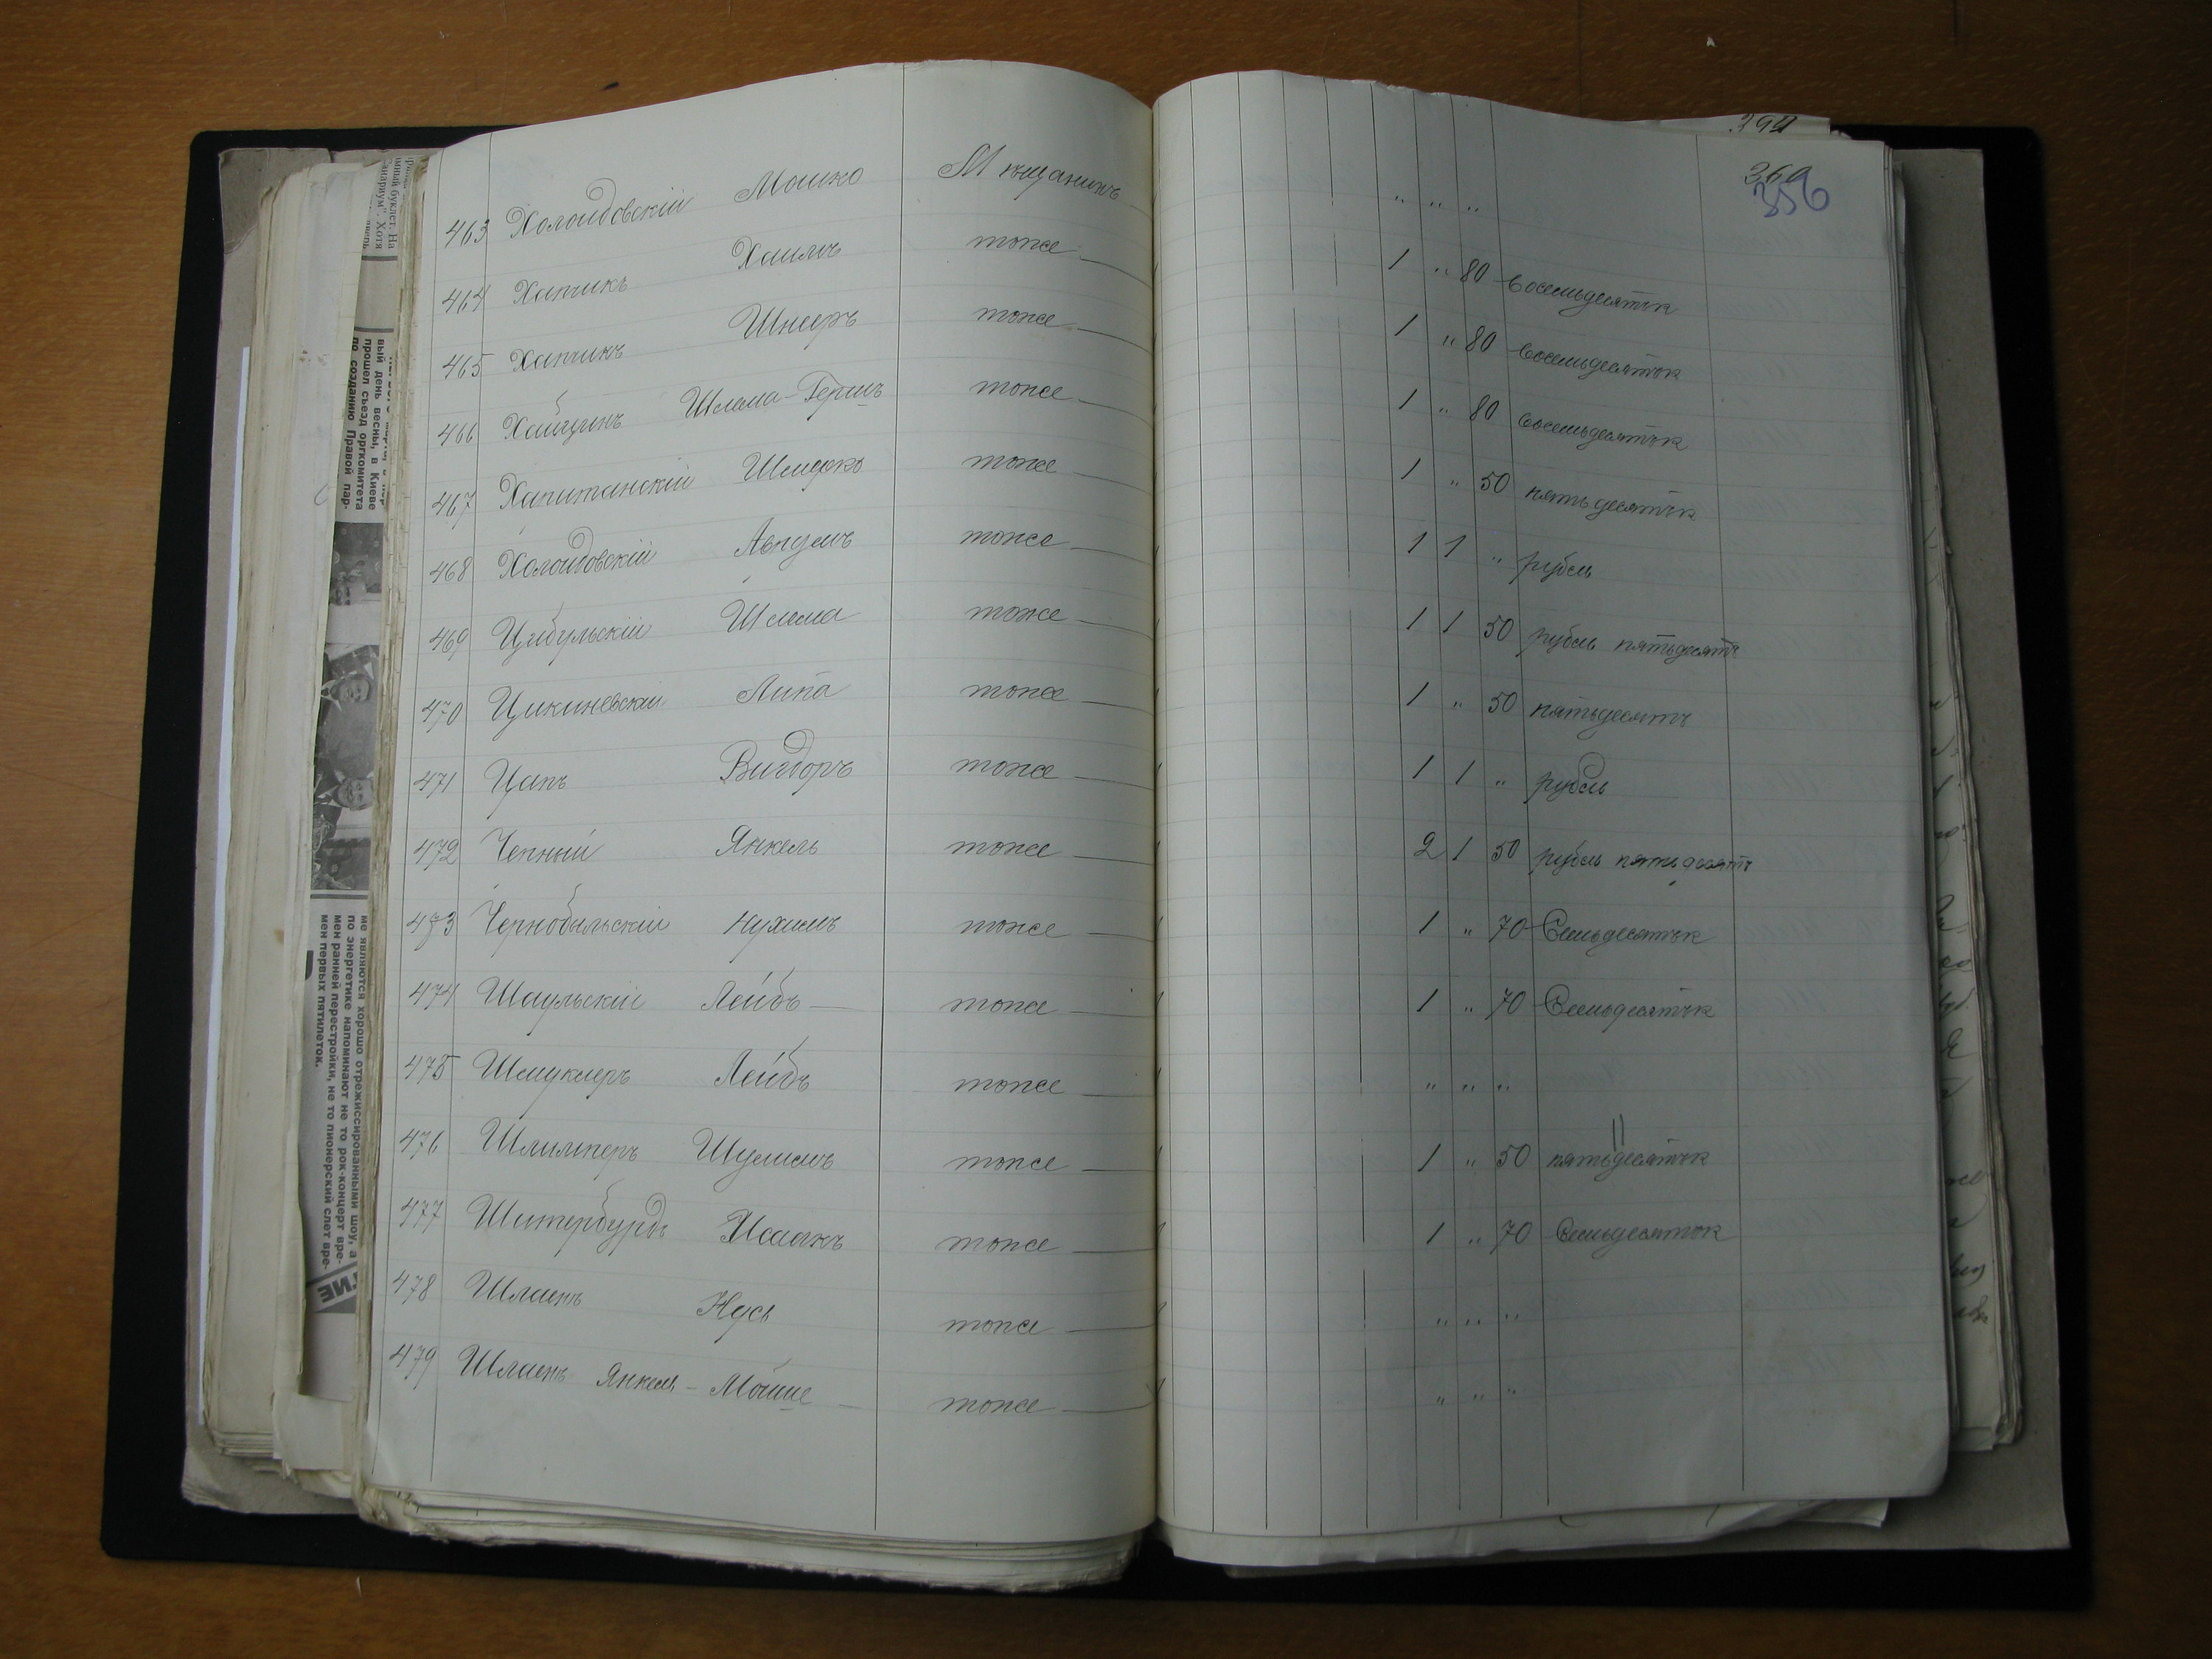 394
360
356
463 Холоидовскій Мошко Мѣщанинъ " " "
464 Хапчикъ Хаимъ тоже 1 " 80 Восемьдесятъ к
465 Хапчикъ Шнееръ тоже 1 " 80 Восемьдесятъ к
466 Хайцинъ Шлема-Гершъ тоже 1 " 80 Восемьдесятъ к
467 Хапитанскій Шмарко тоже 1 " 50 пятьдесятъ к
468 Холоидовскій Аврумъ тоже 1 1 " рубль
469 Цибульскій Шлема тоже 1 1 50 рубль пятьдесятъ
470 Цикиневскій Липа тоже 1 " 50 пятьдесятъ
471 Цапъ Вигдоръ тоже 1 1 " рубль
472 Чепный Янкель тоже 2 1 50 рубль пятьдесятъ
473 Чернобыльскій Нухимъ тоже 1 " 70 Семьдесятъ к
474 Шаульскій Лейбъ тоже 1 " 70 Семьдесятъ к
475 Шмуклеръ Лейбъ тоже " " "
476 Шлимперъ Шулимъ тоже 1 " 50 пятьдесятъ к
477 Шитербурдъ Исаакъ тоже 1 " 70 Семьдесятъ к
478 Шлаенъ Нусъ тоже " " "
479 Шлаенъ Янкель-Мойше тоже " " "
вый день весны, в Киеве
прошел съезд оргкомитета
по созданию Правой пар-
ме являются хорошо отрежиссированными шоу, а
по энергетике напоминают не то рок-концерт вре-
мен ранней перестройки, не то пионерский слет вре-
мен первых пятилеток.